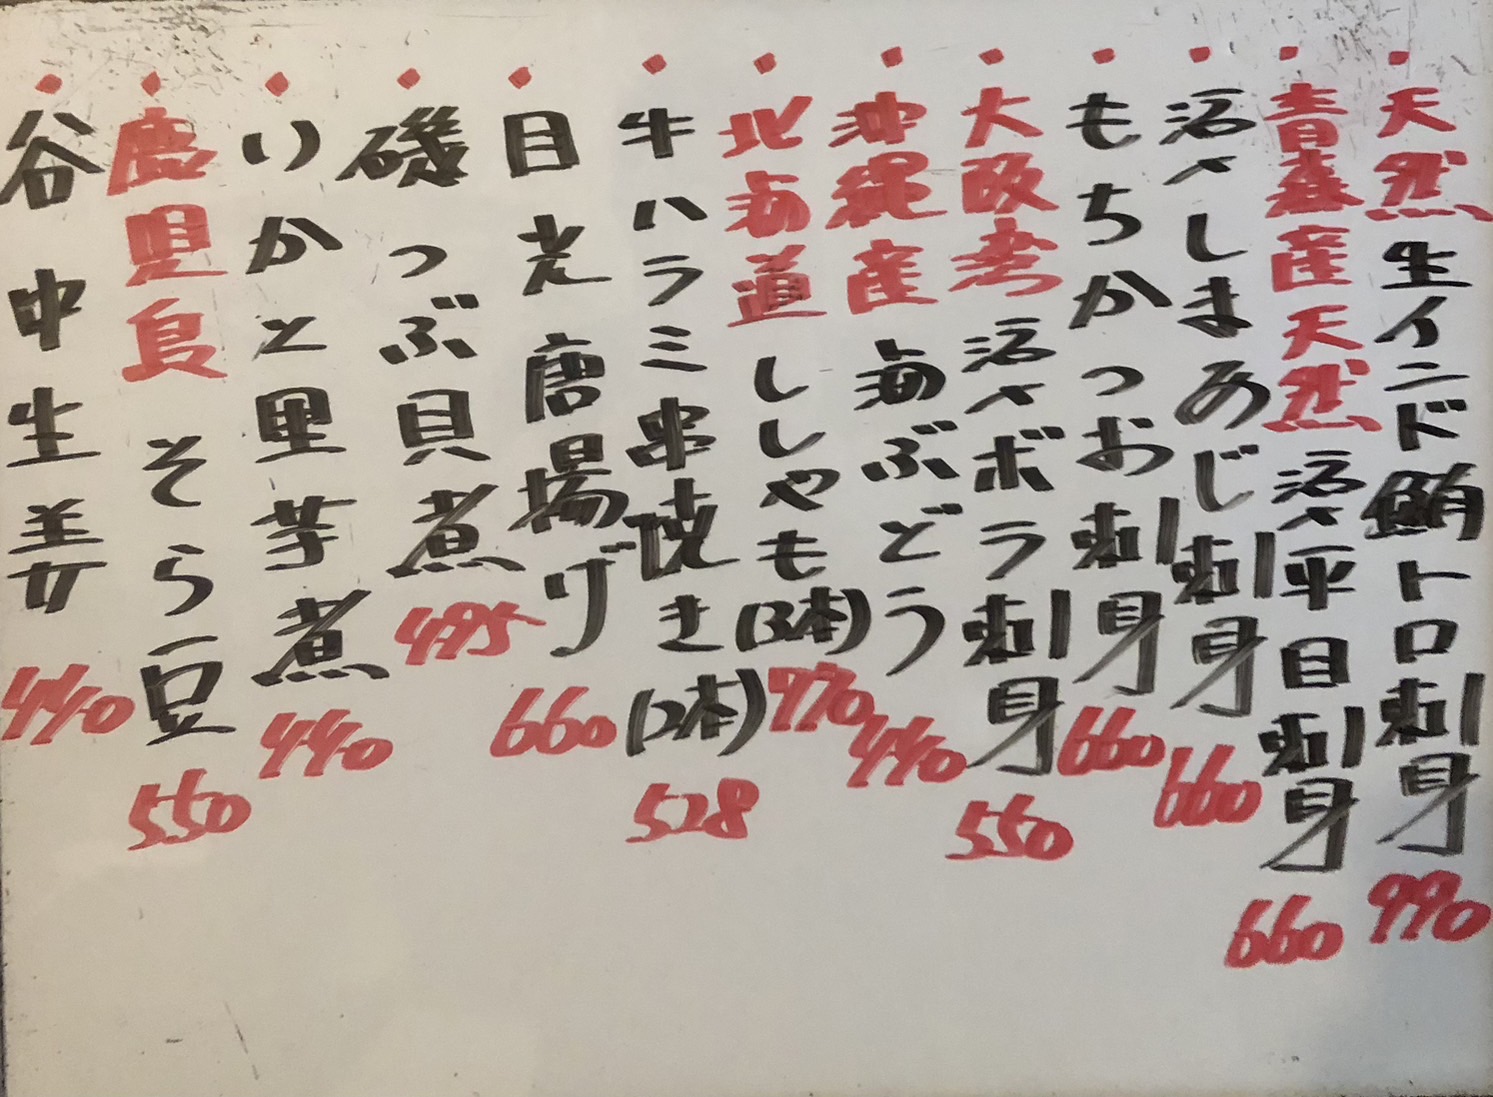 ・天然生インド鮪トロ刺身 990
・青森産天然活〆平目刺身 660
・活〆しまあじ刺身 660
・もちかつお刺身 660
・大阪 活〆ボラ刺身 550
・沖縄産 海ぶどう 440
・北海道 ししゃも(3本) 770
・牛ハラミ串焼き(2本) 528
・目光唐揚げ 660
・磯つぶ貝煮 495
・いかと里芋煮 440
・鹿児島 そら豆 550
・谷中生姜 440